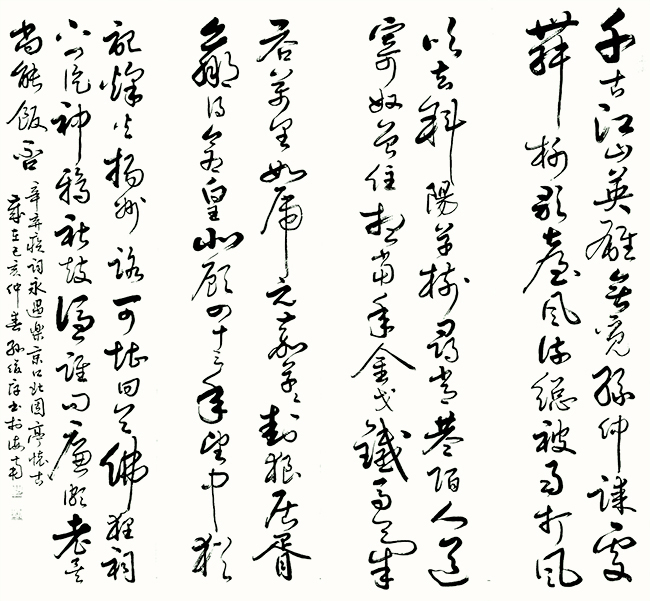 千古江山英雄無覓孫仲謀處
舞榭歌臺風流總被雨打風
吹去斜陽草樹尋常巷陌人道
寄奴曾住想當年金戈鐵馬氣
吞萬里如虎元嘉草草封狼居胥
贏得倉皇北顧四十三年望中猶
記烽火揚州路可堪回首佛狸祠
下一片神鴉社鼓憑誰問廉頗老矣
尚能飯否
辛弃疾詞永遇樂京口北固亭懷古
歲在己亥仲春孫書於海南